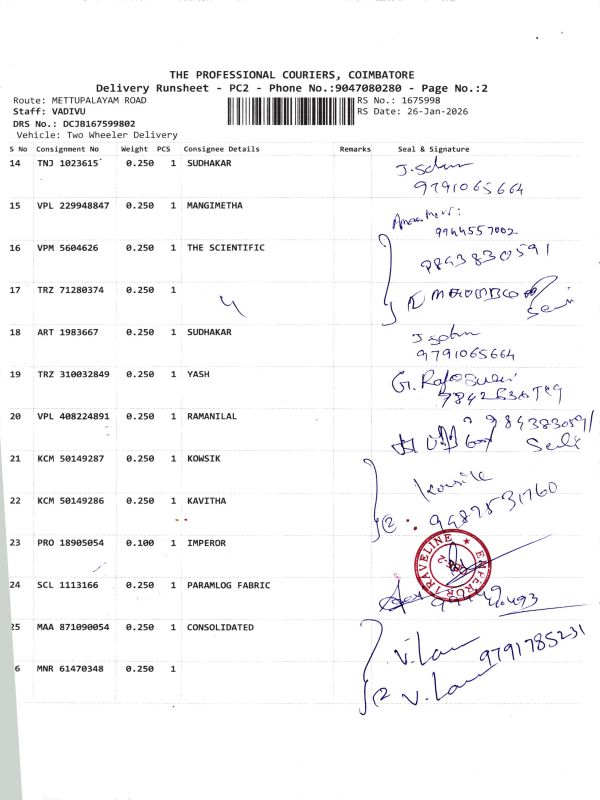 THE PROFESSIONAL COURIERS, COIMBATORE
Delivery Runsheet - PC2 - Phone No.:9047080280 - Page No.:2
Route: METTUPALAYAM ROAD
RS No.: 1675998
Staff: VADIVU
RS Date: 26-Jan-2026
DRS No.: DCJB167599802
Vehicle: Two Wheeler Delivery
S No Consignment No Weight PCS Consignee Details Remarks Seal & Signature
14 TNJ 1023615 0.250 1 SUDHAKAR
9791065664
15 VPL 229948847 0.250 1 MANGIMETHA
9944557002
16 VPM 5604626 0.250 1 THE SCIENTIFIC 9843830591
17 TRZ 71280374 0.250 1
18 ART 1983667 0.250 1 SUDHAKAR
9791065664
19 TRZ 310032849 0.250 1 YASH
20 VPL 408224891 0.250 1 RAMANILAL
21 KCM 50149287 0.250 1 KOWSIK Kowsik
22 KCM 50149286 0.250 1 KAVITHA 9487531760
23 PRO 18905054 0.100 1 IMPEROR EMPEROR TRAVELINE
24 SCL 1113166 0.250 1 PARAMLOG FABRIC
25 MAA 871090054 0.250 1 CONSOLIDATED 9791785231
6 MNR 61470348 0.250 1